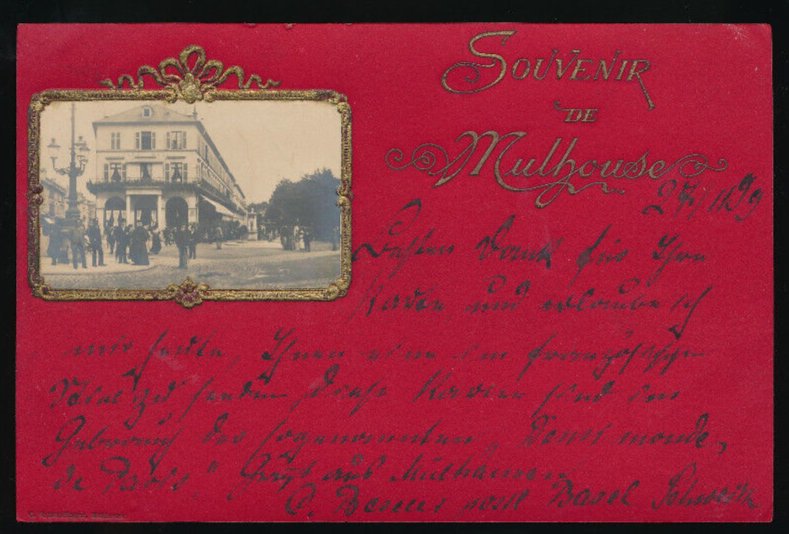 SOUVENIR
DE
Mulhouse
Besten Dank für Ihre
Karte, und erlaube ich
mir heute, Ihnen eine im französischen
senden Diese Karten sind im
Gebrauch der sogenannten „Demi monde„
de Paris." Gruß aus Mülhausen
Basel